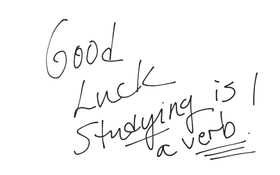 Good
Luck
Studying is
a verb.